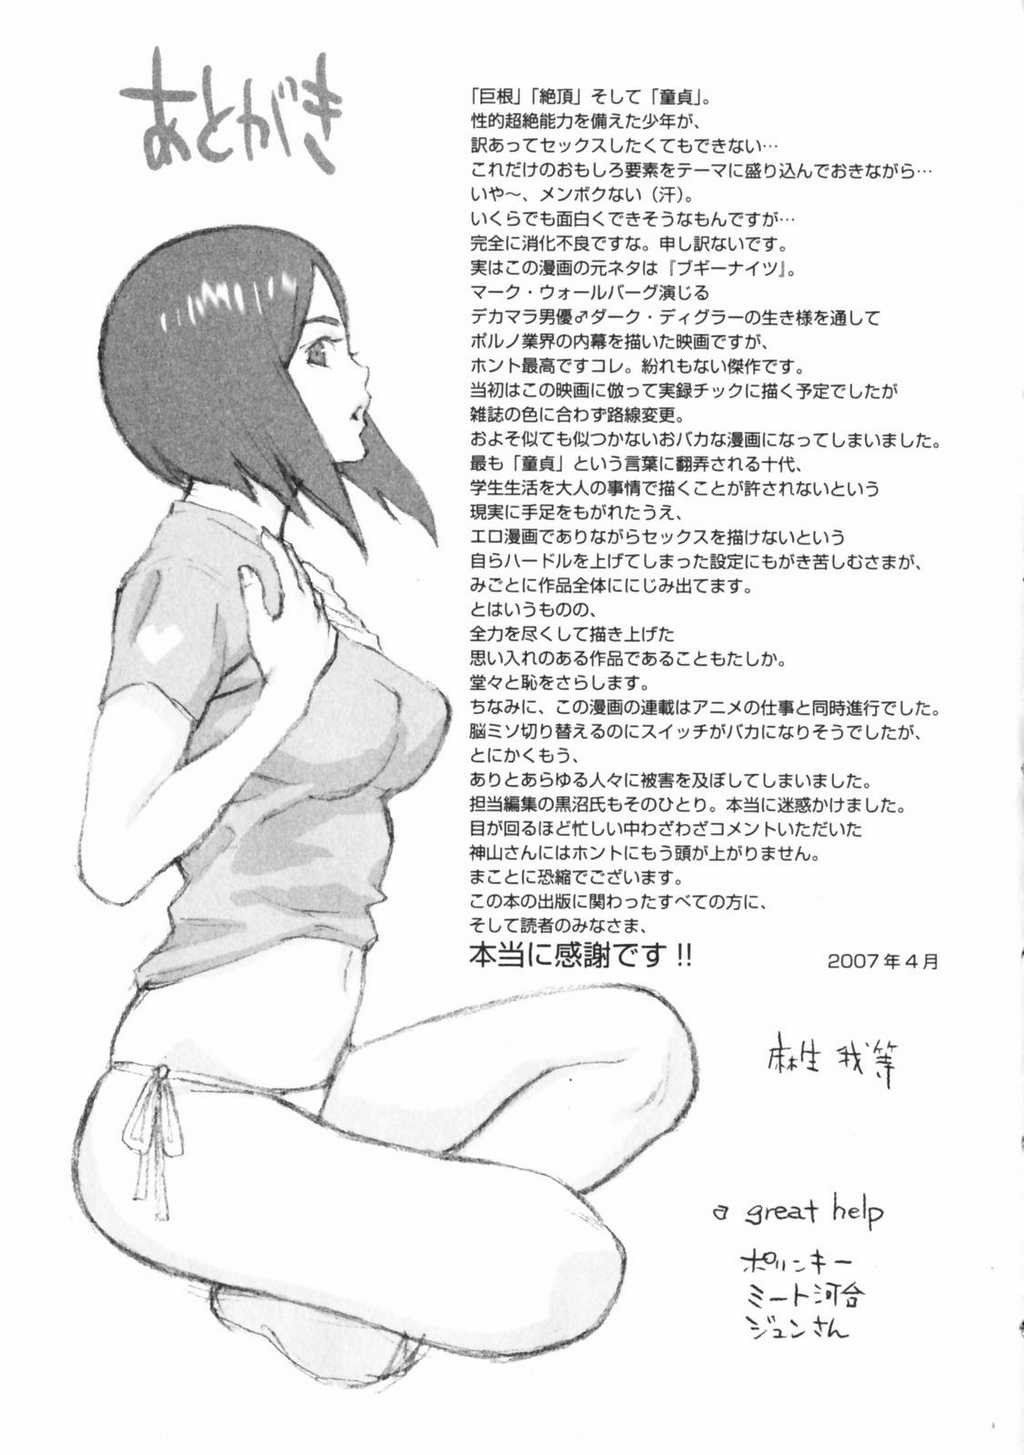 あとがき
「巨根」「絶頂」そして「童貞」。
性的超絶能力を備えた少年が、
訳あってセックスしたくてもできない…
これだけのおもしろ要素をテーマに盛り込んでおきながら…
いや〜、メンボクない（汗）。
いくらでも面白くできそうなもんですが…
完全に消化不良ですな。申し訳ないです。
実はこの漫画の元ネタは『ブギーナイツ』。
マーク・ウォールバーグ演じる
デカマラ男優♂ダーク・ディグラーの生き様を通して
ポルノ業界の内幕を描いた映画ですが、
ホント最高ですコレ。紛れもない傑作です。
当初はこの映画に倣って実録チックに描く予定でしたが
雑誌の色に合わず路線変更。
およそ似ても似つかないおバカな漫画になってしまいました。
最も「童貞」という言葉に翻弄される十代、
学生生活を大人の事情で描くことが許されないという
現実に手足をもがれたうえ、
エロ漫画でありながらセックスを描けないという
自らハードルを上げてしまった設定にもがき苦しむさまが、
みごとに作品全体ににじみ出てます。
とはいうものの、
全力を尽くして描き上げた
思い入れのある作品であることもたしか。
堂々と恥をさらします。
ちなみに、この漫画の連載はアニメの仕事と同時進行でした。
脳ミソ切り替えるのにスイッチがバカになりそうでしたが、
とにかくもう、
ありとあらゆる人々に被害を及ぼしてしまいました。
担当編集の黒沼氏もそのひとり。本当に迷惑かけました。
目が回るほど忙しい中わざわざコメントいただいた
神山さんにはホントにもう頭が上がりません。
まことに恐縮でございます。
この本の出版に関わったすべての方に、
そして読者のみなさま、
本当に感謝です!!
2007年4月
麻生 我等
a great help
ポリンキー
ミート河合
ジュンさん